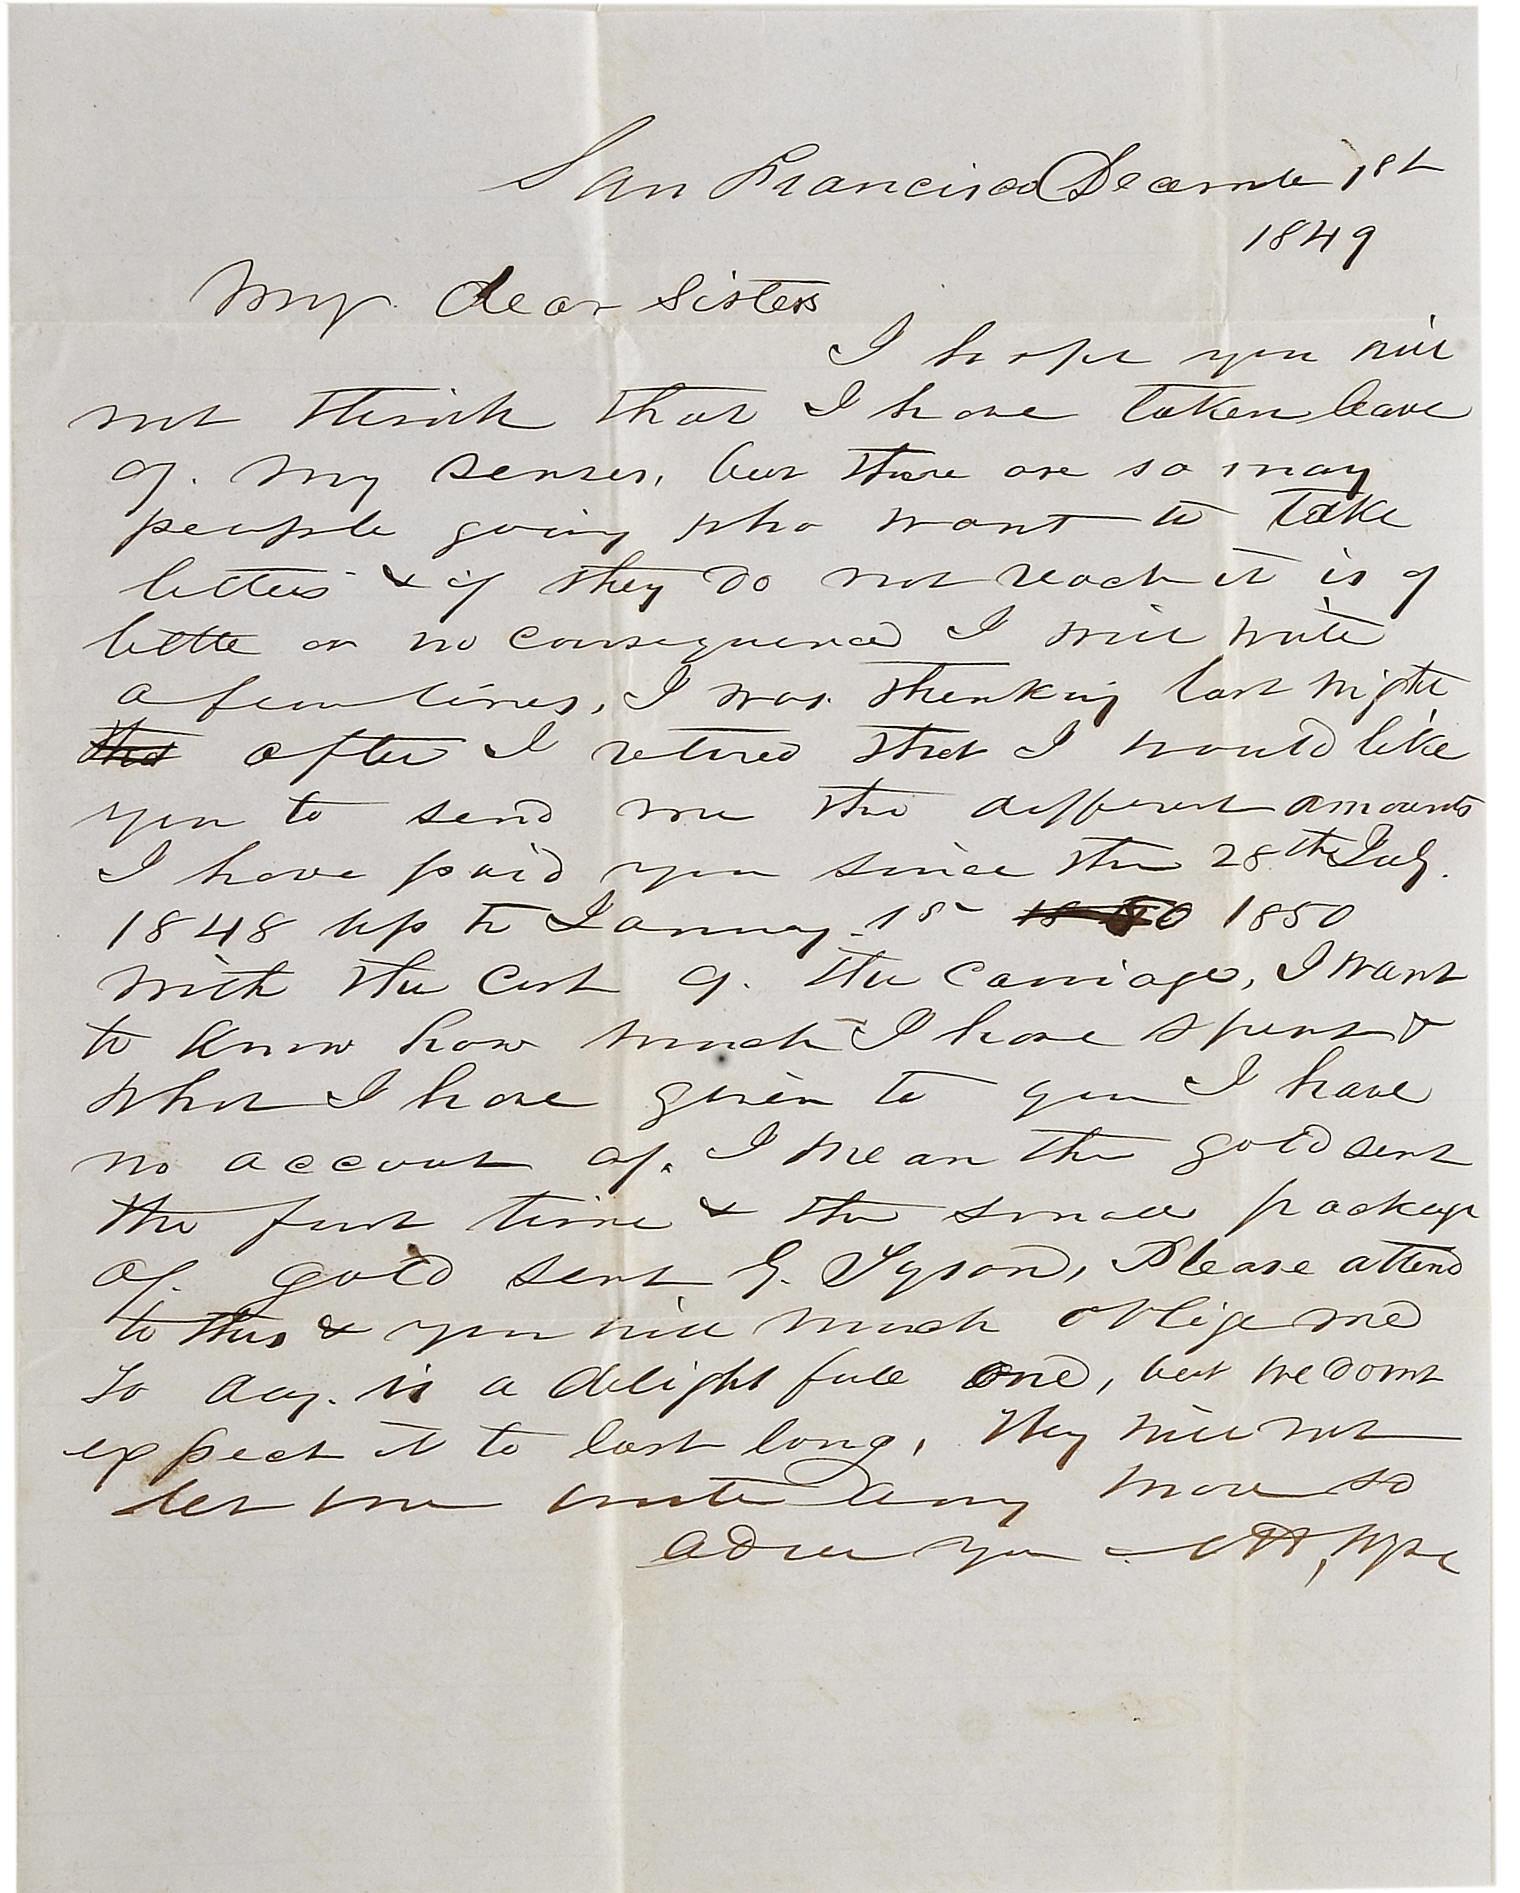 San Francisco December 1st
1849
My dear Sisters
I hope you will
not think that I have taken leave
of my senses, but there are so may
people going who want to take
letters & if they do not reach it is of
little or no consequence I will write
a few lines, I was thinking last night
that after I retired that I would like
you to send me the different amounts
I have paid you since the 28th July.
1848 up to January 1st 1850 1850
with the cost of the carriage, I want
to know how much I have spent &
what I have given to you I have
no account of. I mean the gold sent
the first time & the small package
of gold sent G. Tyson, Please attend
to this & you will much oblige me
To day is a delight full one, but we dont
expect it to last long, They will not
let me write any more so
adieu